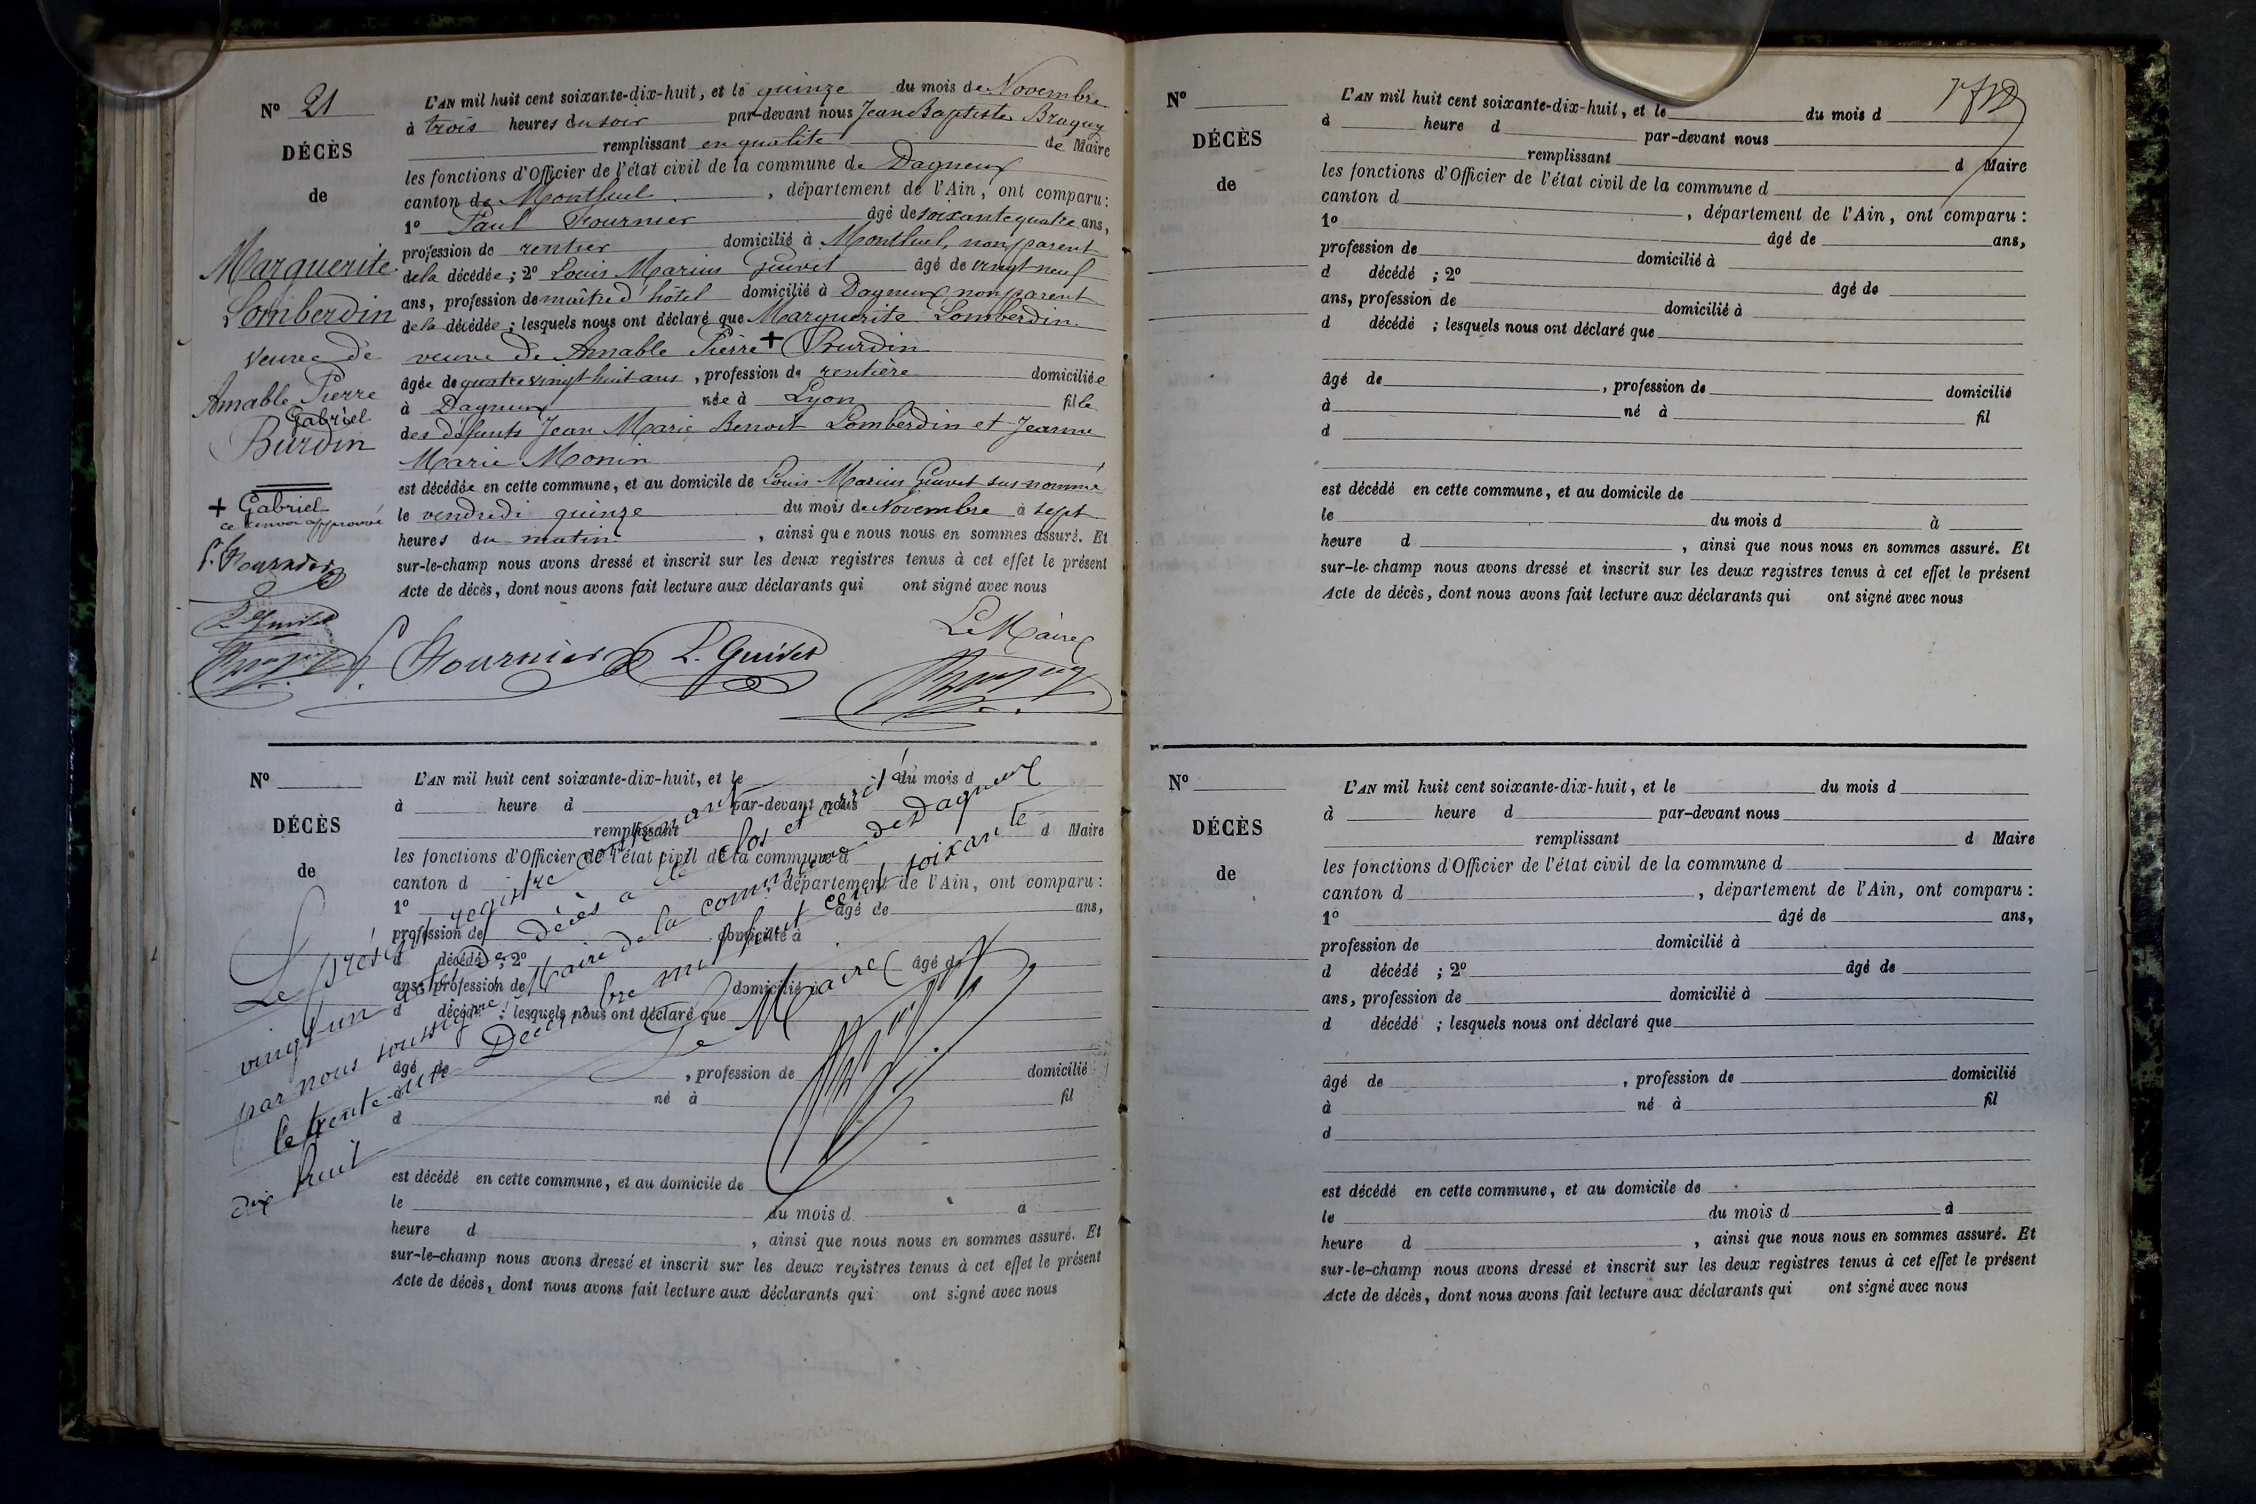 N° 21
DÉCÈS
de
Marguerite
Lomberdin
veuve de
Amable Pierre
Gabriel
Burdin
+ Gabriel
ce renvoi approuvé
P. Fournier
L. Guivet
L'AN mil huit cent soixante-dix-huit, et le quinze du mois de Novembre
à trois heures du soir par-devant nous Jean Baptiste
remplissant en qualité de Maire
les fonctions d'Officier de l'état civil de la commune de Dagneux
canton de Montluel, département de l'Ain, ont comparu :
1° Paul Fournier âgé de soixante quatre ans,
profession de rentier domicilié à Montluel, non parent
de la décédée ; 2° Louis Marius Guivet âgé de vingt neuf
ans, profession de maître d'hôtel domicilié à Dagneux, non parent
de la décédée ; lesquels nous ont déclaré que Marguerite Lomberdin
veuve de Amable Pierre + Burdin
âgée de quatre vingt huit ans, profession de rentière domiciliée
à Dagneux née à Lyon fille
des défunts Jean Marie Benoit Lomberdin et Jeanne
Marie Monin,
est décédée en cette commune, et au domicile de Louis Marius Guivet sus nommé
le vendredi quinze du mois de Novembre à sept
heures du matin, ainsi que nous nous en sommes assuré. Et
sur-le-champ nous avons dressé et inscrit sur les deux registres tenus à cet effet le présent
Acte de décès, dont nous avons fait lecture aux déclarants qui ont signé avec nous
Le Maire
P. Fournier L. Guivet
N°
DÉCÈS
de
L'AN mil huit cent soixante-dix-huit, et le du mois d
à heure d par-devant nous
remplissant d Maire
les fonctions d'Officier de l'état civil de la commune d
canton d , département de l'Ain, ont comparu :
1° âgé de ans,
profession de domicilié à
d décédé ; 2° âgé de
ans, profession de domicilié à
d décédé ; lesquels nous ont déclaré que
âgé de , profession de domicilié
à né à fil
d
est décédé en cette commune, et au domicile de
le du mois d à
heure d , ainsi que nous nous en sommes assuré. Et
sur-le-champ nous avons dressé et inscrit sur les deux registres tenus à cet effet le présent
Acte de décès, dont nous avons fait lecture aux déclarants qui ont signé avec nous
Le présent registre contenant
vingt un actes de décès a été clos et arrêté
par nous soussigné Maire de la commune de Dagneux
le trente-un Décembre mil huit cent soixante
dix huit
Le Maire
N°
DÉCÈS
de
L'AN mil huit cent soixante-dix-huit, et le du mois d
à heure d par-devant nous
remplissant d Maire
les fonctions d'Officier de l'état civil de la commune d
canton d , département de l'Ain, ont comparu :
1° âgé de ans,
profession de domicilié à
d décédé ; 2° âgé de
ans, profession de domicilié à
d décédé ; lesquels nous ont déclaré que
âgé de , profession de domicilié
à né à fil
d
est décédé en cette commune, et au domicile de
le du mois d à
heure d , ainsi que nous nous en sommes assuré. Et
sur-le-champ nous avons dressé et inscrit sur les deux registres tenus à cet effet le présent
Acte de décès, dont nous avons fait lecture aux déclarants qui ont signé avec nous
N°
DÉCÈS
de
L'AN mil huit cent soixante-dix-huit, et le du mois d
à heure d par-devant nous
remplissant d Maire
les fonctions d'Officier de l'état civil de la commune d
canton d , département de l'Ain, ont comparu :
1° âgé de ans,
profession de domicilié à
d décédé ; 2° âgé de
ans, profession de domicilié à
d décédé ; lesquels nous ont déclaré que
âgé de , profession de domicilié
à né à fil
d
est décédé en cette commune, et au domicile de
le du mois d à
heure d , ainsi que nous nous en sommes assuré. Et
sur-le-champ nous avons dressé et inscrit sur les deux registres tenus à cet effet le présent
Acte de décès, dont nous avons fait lecture aux déclarants qui ont signé avec nous